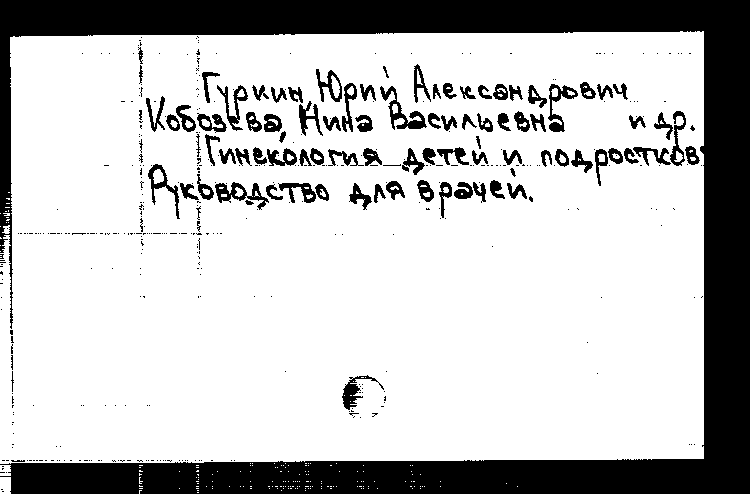 Гуркин, Юрий Александрович
Кобозева, Нина Васильевна и др.
Гинекология детей и подростков
Руководство для врачей.